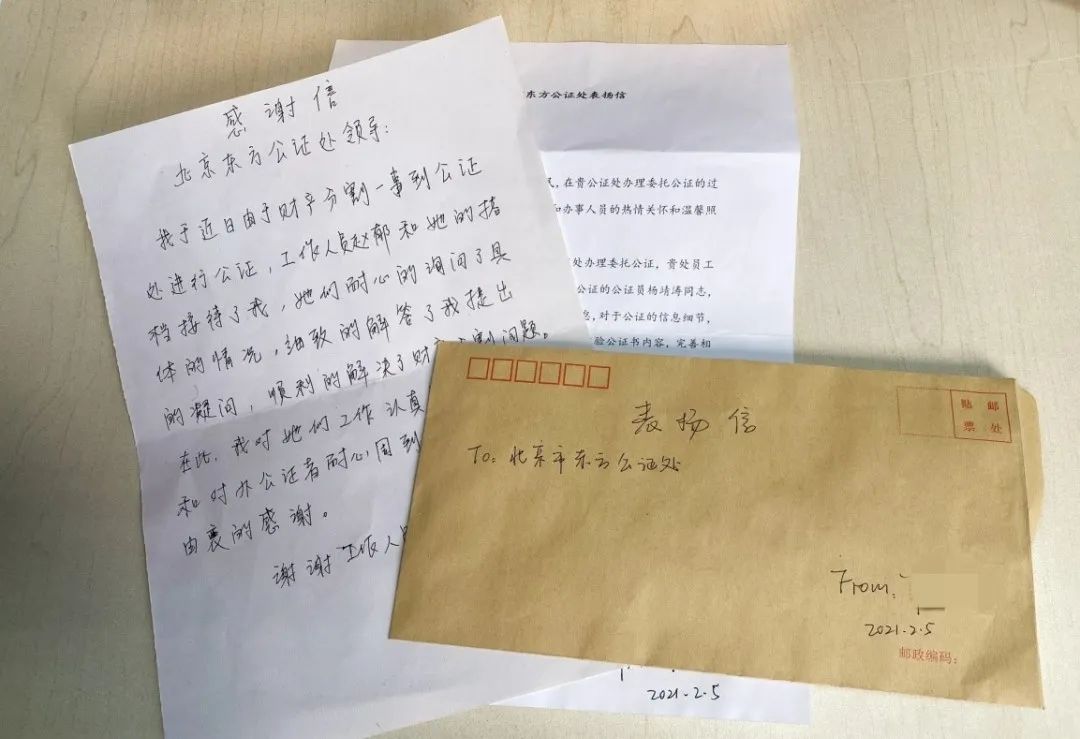 感谢信
北京东方公证处领导:
我于近日由于财产分割一事到公证
处进行公证,工作人员赵郁和她的搭
档接待了我,她们耐心的询问了具
体的情况,细致的解答了我提出
的凝问,顺利的解决了财产分割问题。
在此,我对她们工作认真
和对办公证者耐心,周到
由衷的感谢。
谢谢工作人员
东方公证处表扬信
民,在贵公证处办理委托公证的过
和办事人员的热情关怀和温馨照
处办理委托公证,贵处员工
公证的公证员杨靖涛同志,
对于公证的信息细节,
验公证书内容,完善和
2021.2.5
贴邮
票处
表扬信
To:北京市东方公证处
From:
2021.2.5
邮政编码: